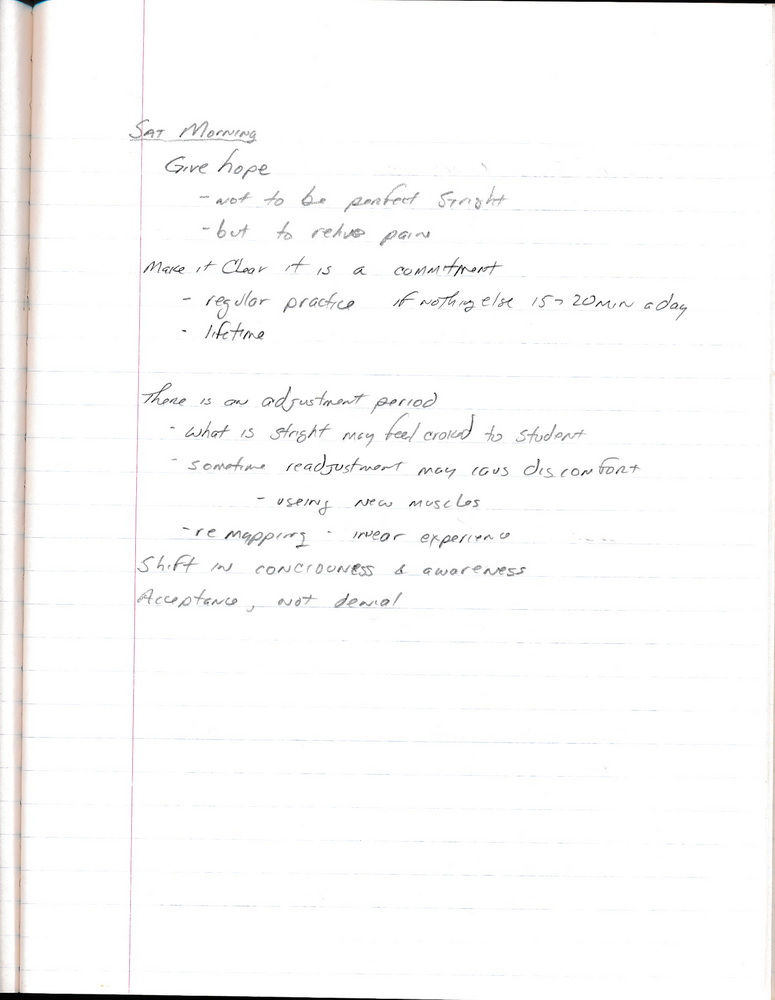 Sat Morning
Give hope
- not to be perfect Stright
- but to relive pain
Make it Clear it is a commitment
- regular practice if nothing else 15-20 min a day
- lifetime
There is an adjustment period
- what is stright may feel croked to student
- sometime readjustment may caus discomfort
- useing new muscles
- re mapping - inner experience
Shift in conciouness & awareness
Acceptance, not denial